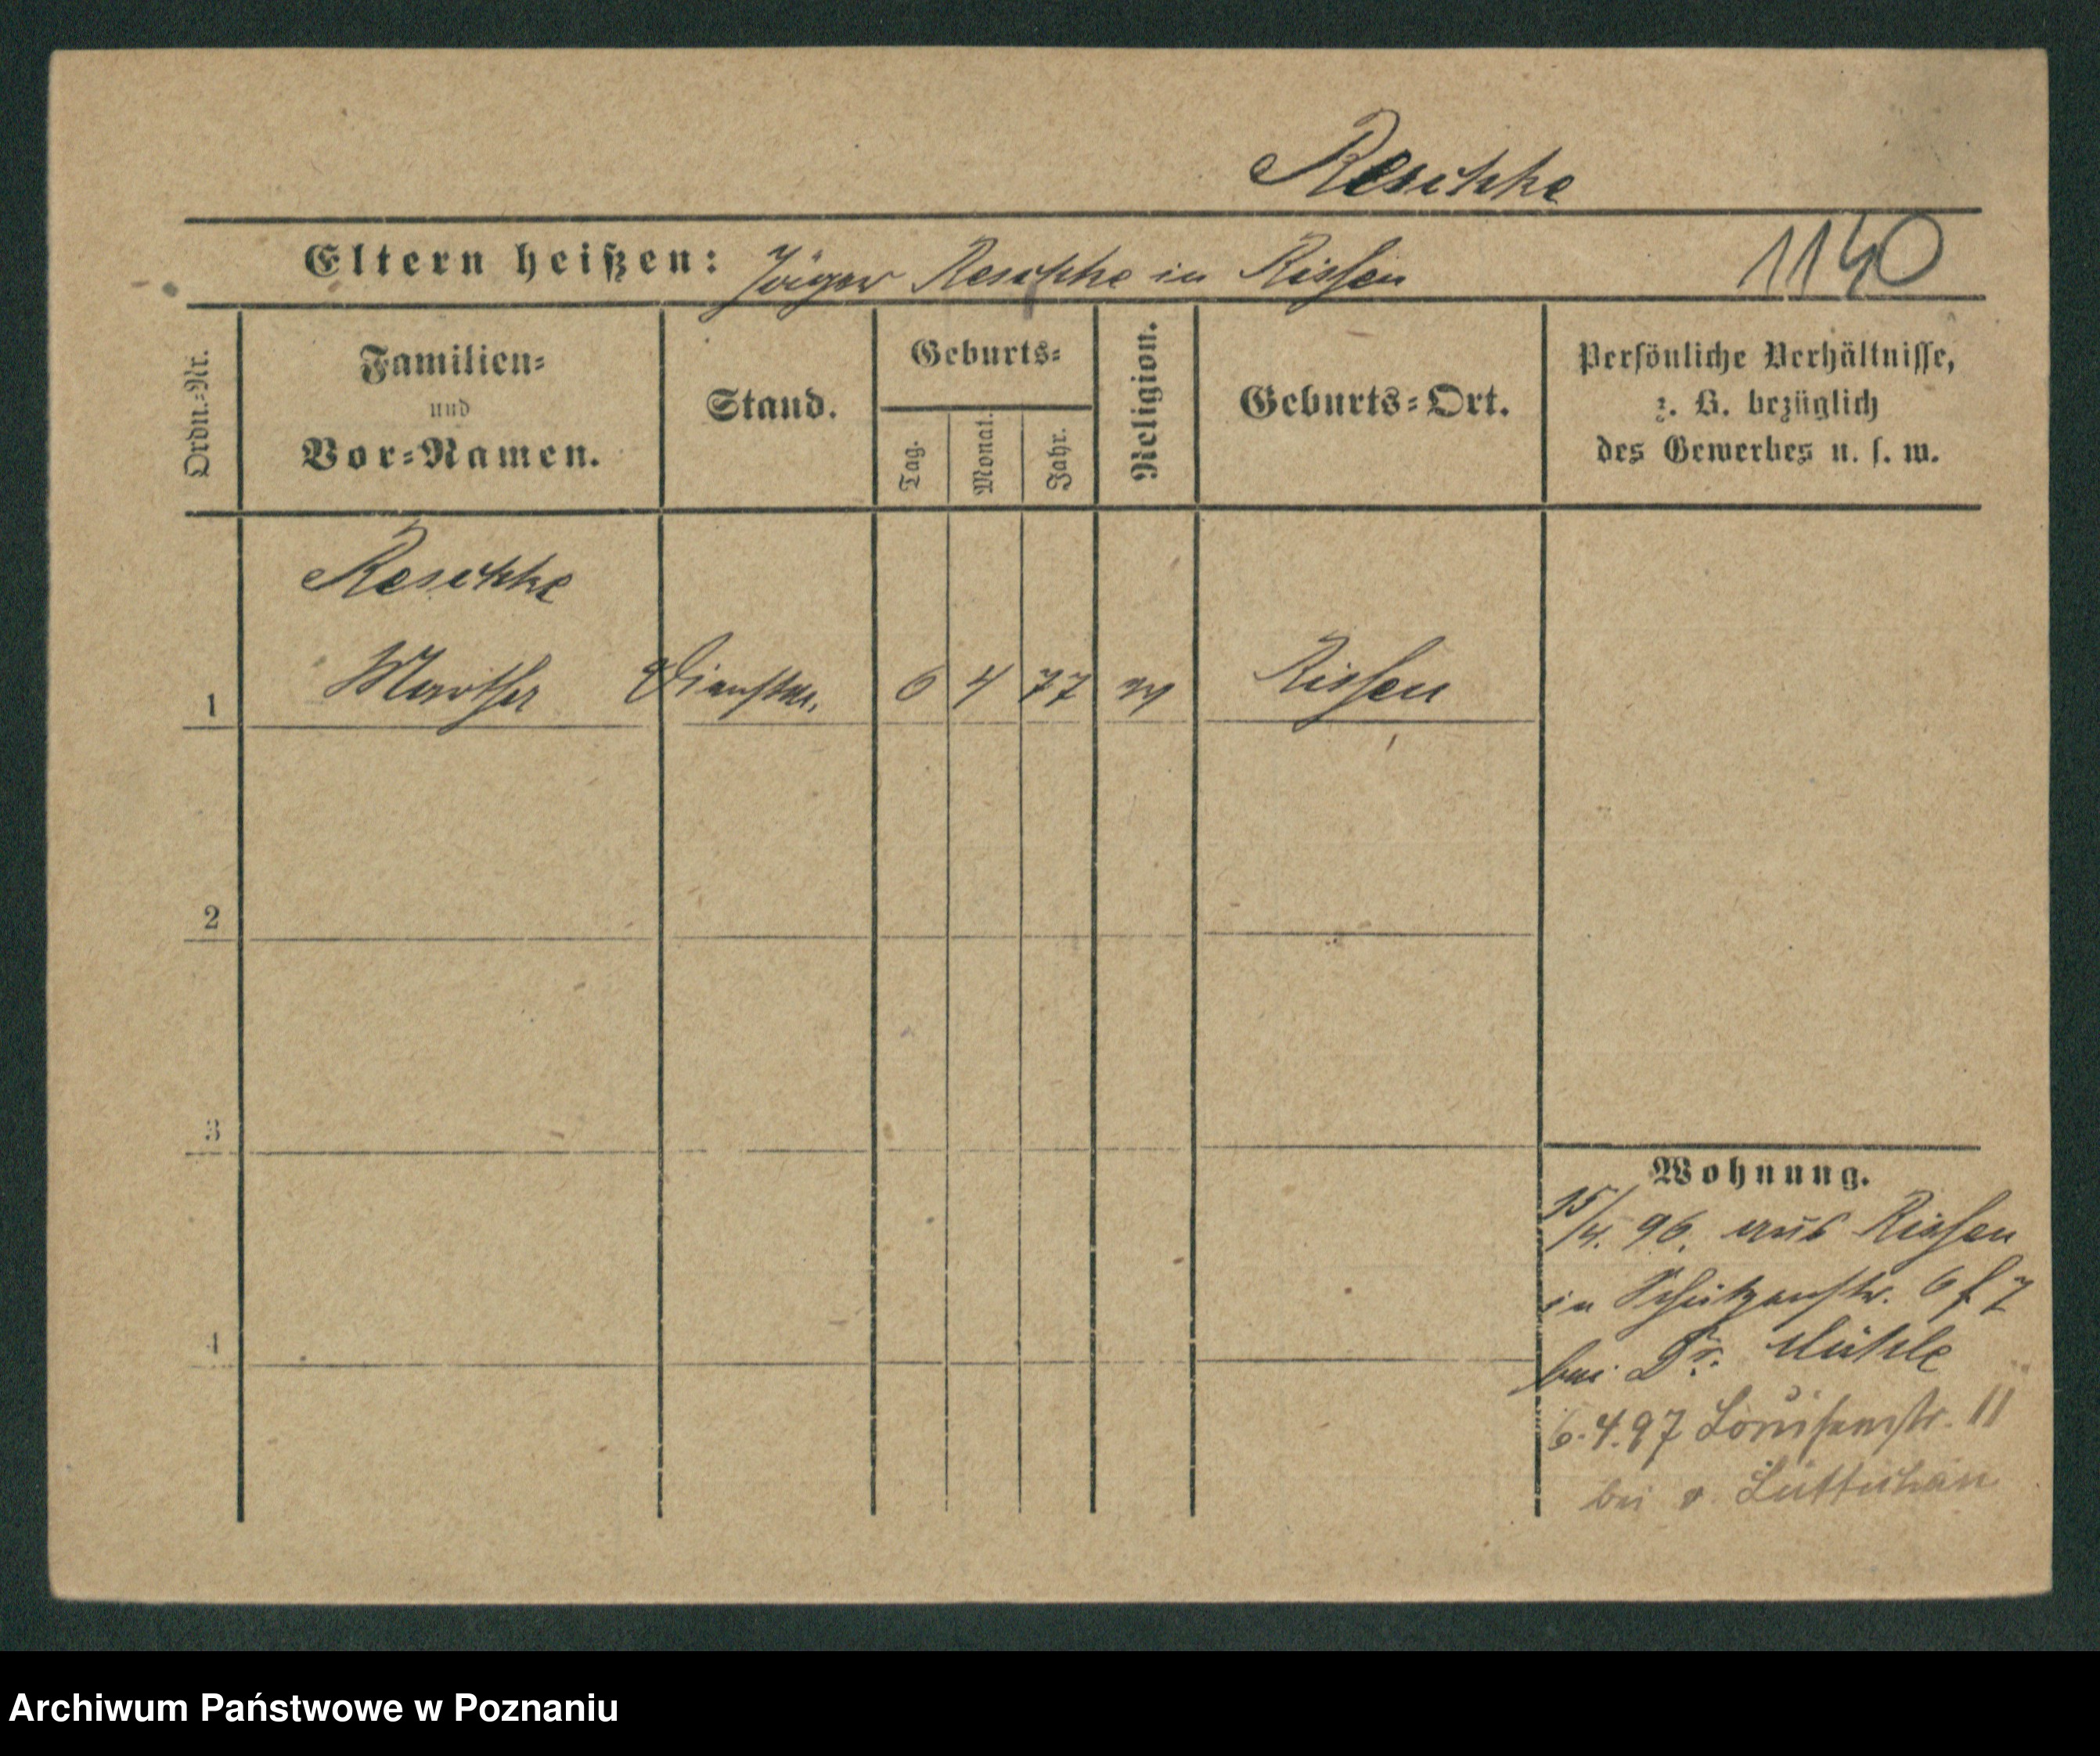 Reschke
Eltern heißen: Jäger Reschke in Rissen 1140
Ordn.-Nr.
Familien-
und
Vor-Namen.
Stand.
Geburts-
Tag.
Monat.
Jahr.
Religion.
Geburts-Ort.
Persönliche Verhältnisse,
z. B. bezüglich
des Gewerbes u. s. w.
Reschke
1 Martha Dienstm. 6 4 77 Rissen
2
3
4
Wohnung.
15/4. 96. aus Rissen
in Schützenstr. 6
bei Dr. Mühle
6.4.97 Louisenstr. 11
bei v.
Archiwum Państwowe w Poznaniu